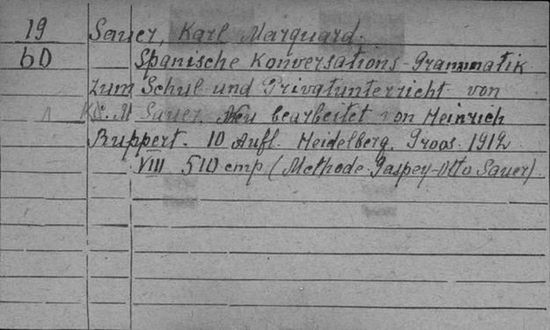 19 Sauer, Karl Marquard.
60 Spanische Konversations-Grammatik
zum Schul und Privatunterricht von
K. M Sauer. Neu bearbeitet von Heinrich
Ruppert. 10 Aufl. Heidelberg. Groos. 1912
VIII 510 cmp (Methode Gaspey-Otto Sauer).